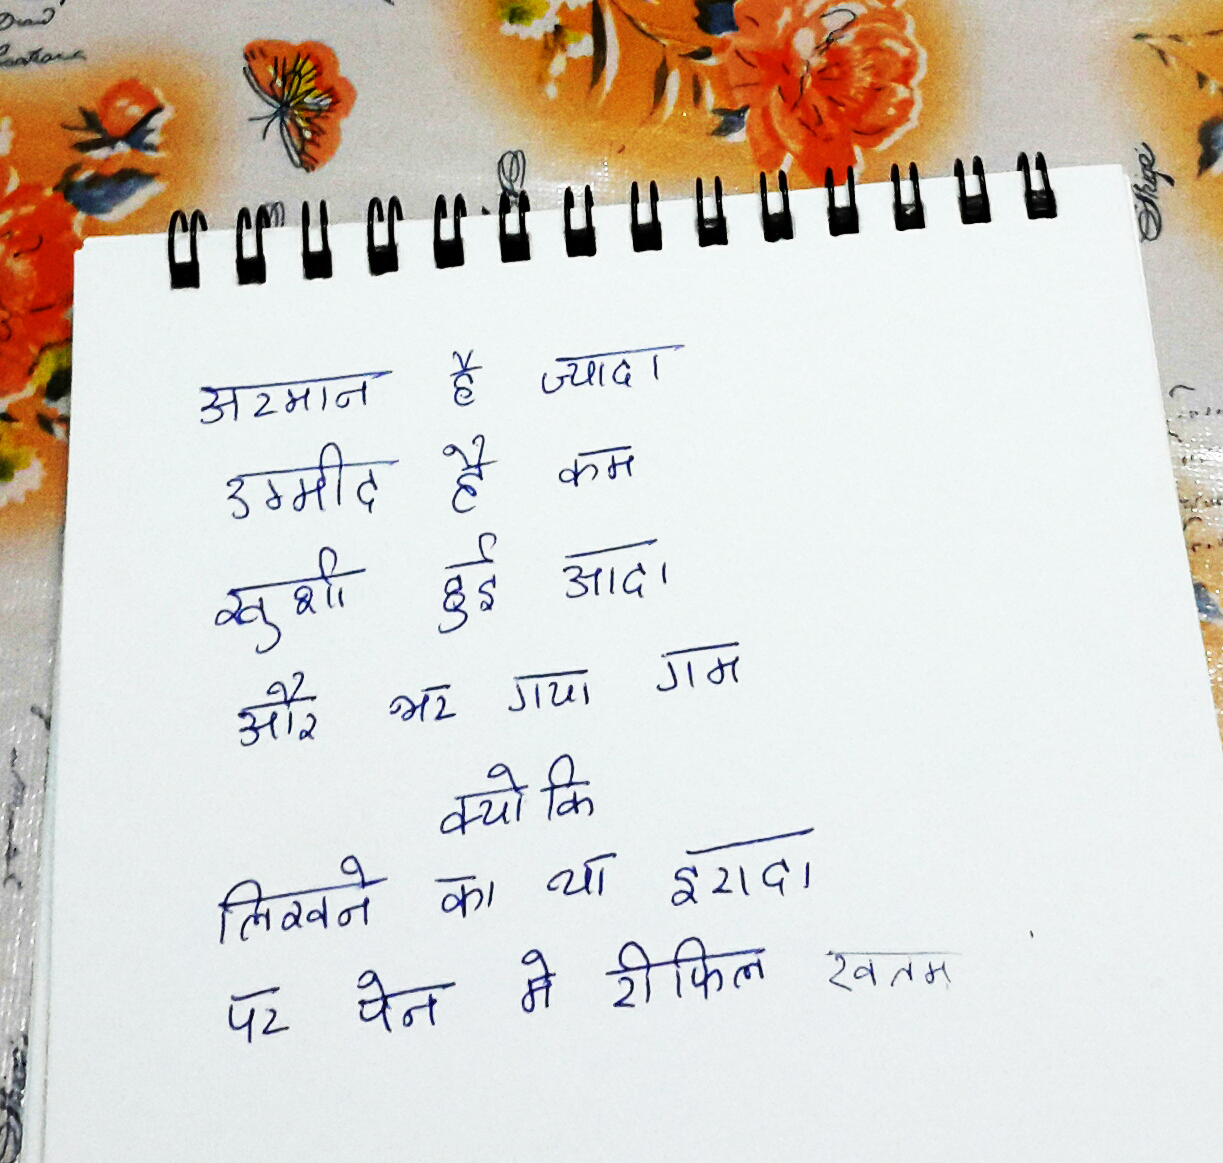 अरमान है ज्यादा
उम्मीद है कम
खुशी हुई आदा
और भर गया गम
क्यो कि
लिखने का था इरादा
पर पेन मे रीफिल खतम